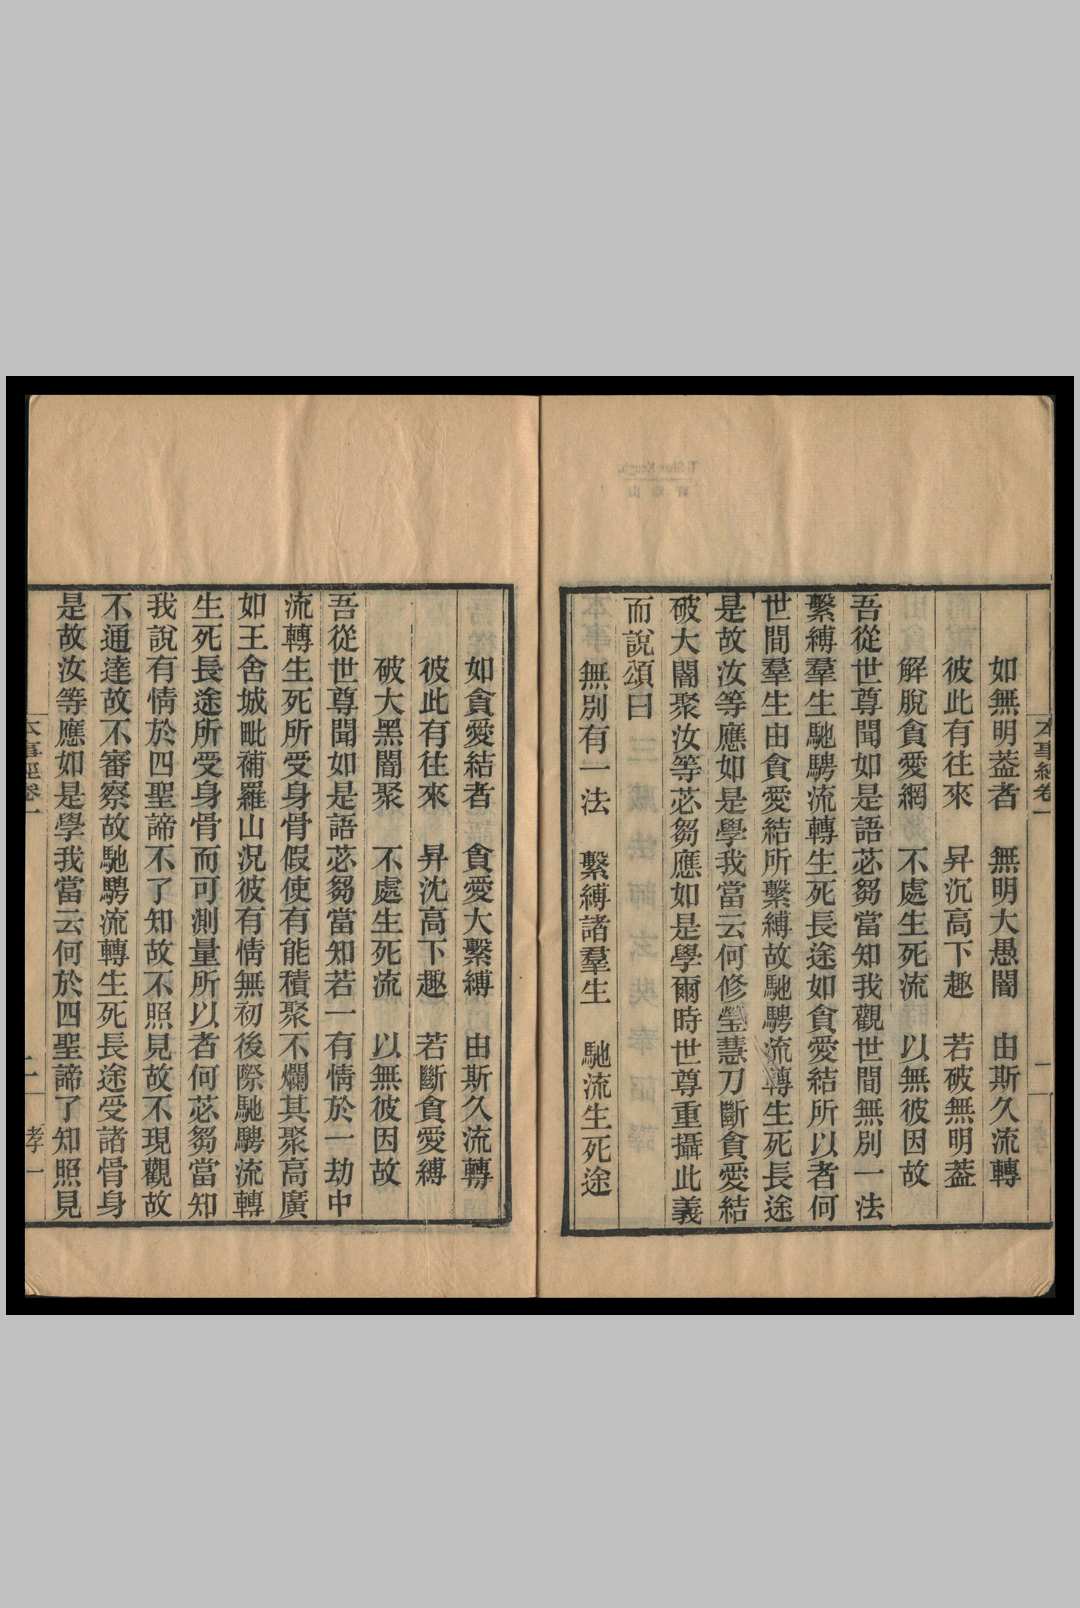 本事經卷一
一
如無明葢者　無明大愚闇　由斯久流轉
彼此有往來　昇沉高下趣　若破無明葢
解脫貪愛網　不處生死流　以無彼因故
吾從世尊聞如是語苾芻當知我觀世間無別一法
繫縛羣生馳騁流轉生死長途如貪愛結所以者何
世間羣生由貪愛結所繫縛故馳騁流轉生死長途
是故汝等應如是學我當云何修瑩慧刀斷貪愛結
破大闇聚汝等苾芻應如是學爾時世尊重攝此義
而說頌曰
無別有一法　繫縛諸羣生　馳流生死途
如貪愛結者　貪愛大繫縛　由斯久流轉
彼此有往來　昇沈高下趣　若斷貪愛縛
破大黑闇聚　不處生死流　以無彼因故
吾從世尊聞如是語苾芻當知若一有情於一劫中
流轉生死所受身骨假使有能積聚不爛其聚高廣
如王舍城毗補羅山況彼有情無初後際馳騁流轉
生死長途所受身骨而可測量所以者何苾芻當知
我說有情於四聖諦不了知故不照見故不現觀故
不通達故不審察故馳騁流轉生死長途受諸骨身
是故汝等應如是學我當云何於四聖諦了知照見
本事經卷一
二
孝一